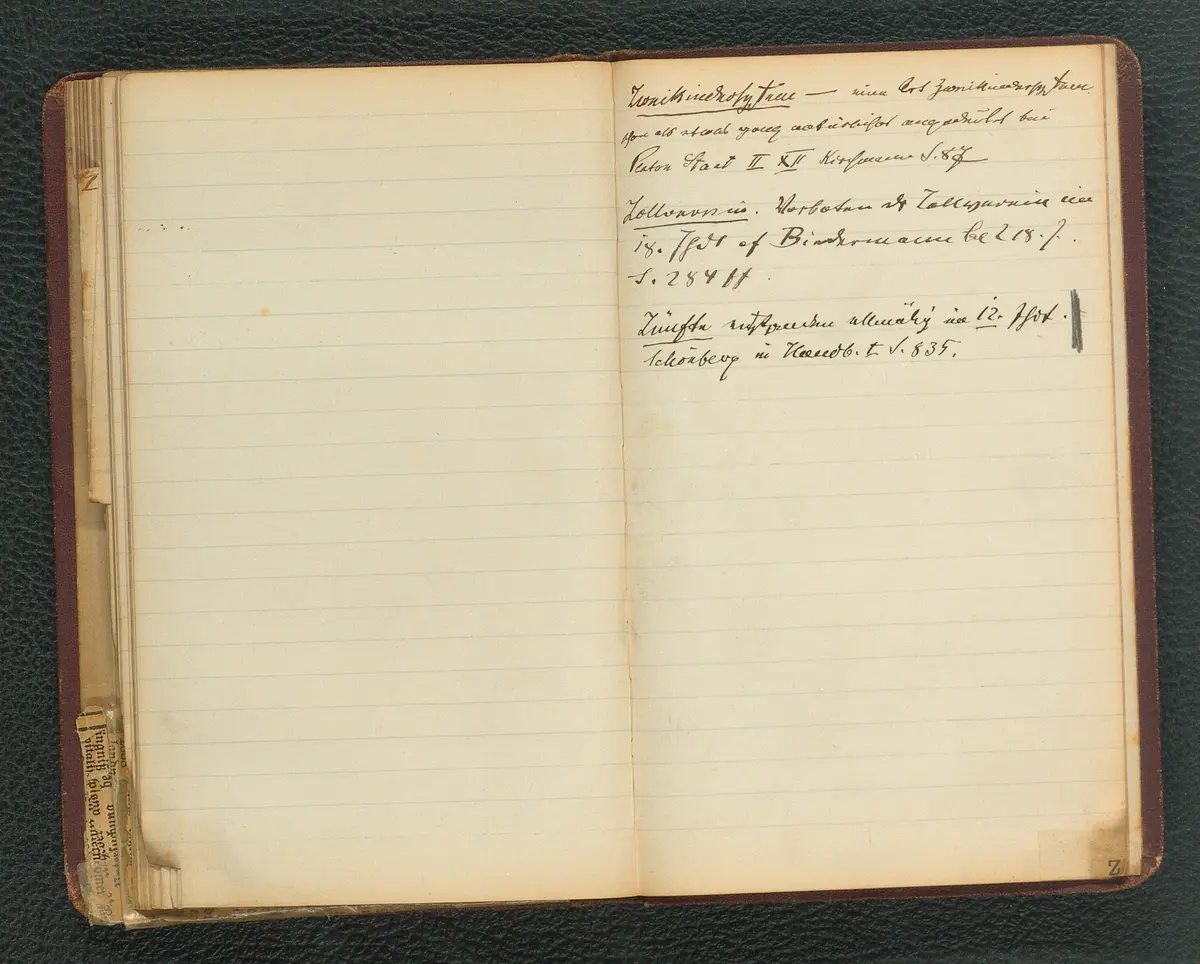 Zweikindersystem — eine Art Zweikindersystem
schon als etwas ganz natürliches angedeutet bei
Platon Staat II XII Kirchmann S. 87
Zollverein. Vorboten des Zollverein im
18. Jhdt cf Biedermann 18. J.
S. 284 ff
Zünfte entstanden allmälig im 12. Jhdt.
Schönberg in Handb. I S. 835.
Z